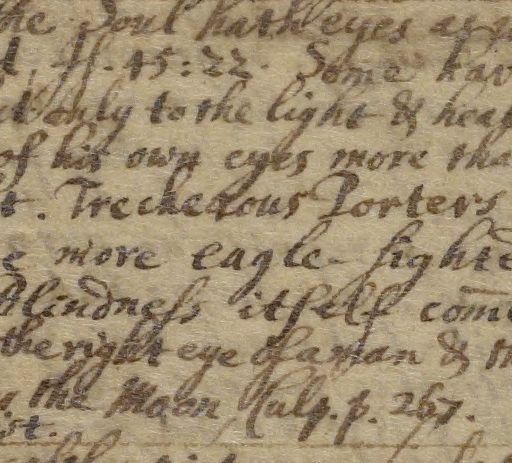 the Soul hath eyes as
Is. 45:22. Some hav
only to the light & hea
of his own eyes more tha
t. Trecherous Porters
e more eagle-sighte
Blindness itself com
the right eye of a man & th
the Moon, Culp. p. 267.
st.